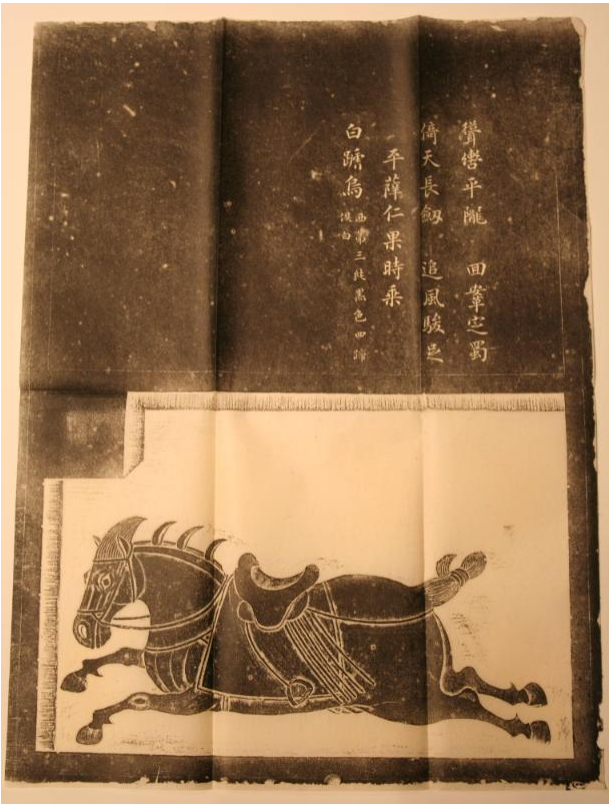 聳轡平隴 回鞌定蜀
倚天長劒 追風駿足
平薛仁果時乘
白蹄烏 西第三純黑色四蹄
俱白